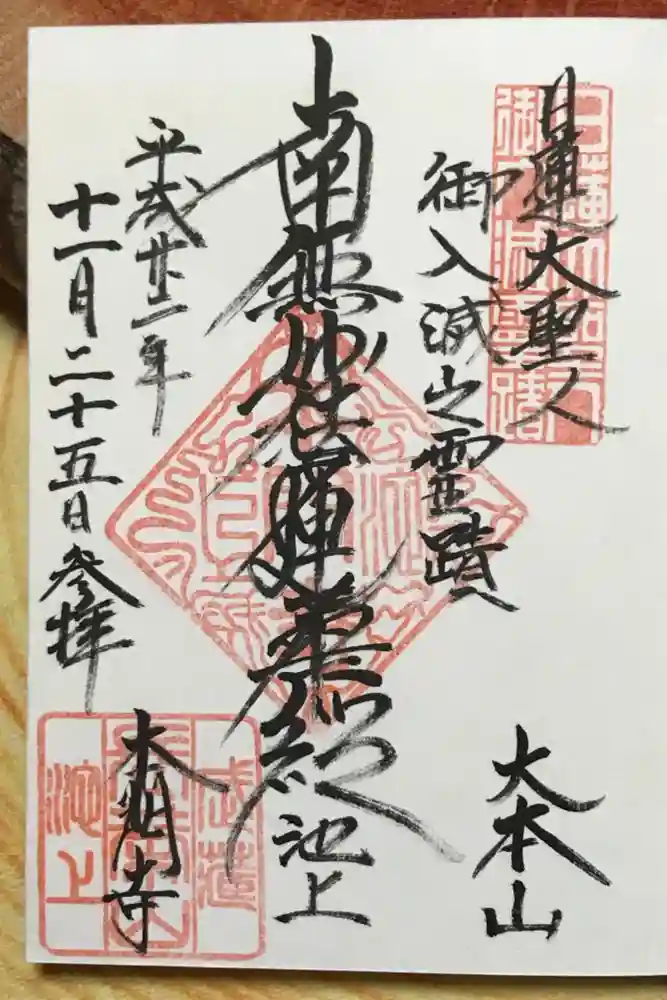 日蓮大聖人
御入滅之霊蹟
大本山
南無妙法蓮華経
池上
平成廿二年
十一月二十五日参拝
本門寺
武蔵
池上